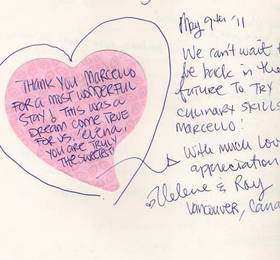 Thank you Marcello
for a most wonderful
stay & this was a
dream come true
for us. Elena,
you are truly
the sweetest!
May 9th '11
We can't wait t
be back in the
future to try
culinary skills
Marcello!
With much Love
appreciation
Helene & Roy
Vancouver, Cana